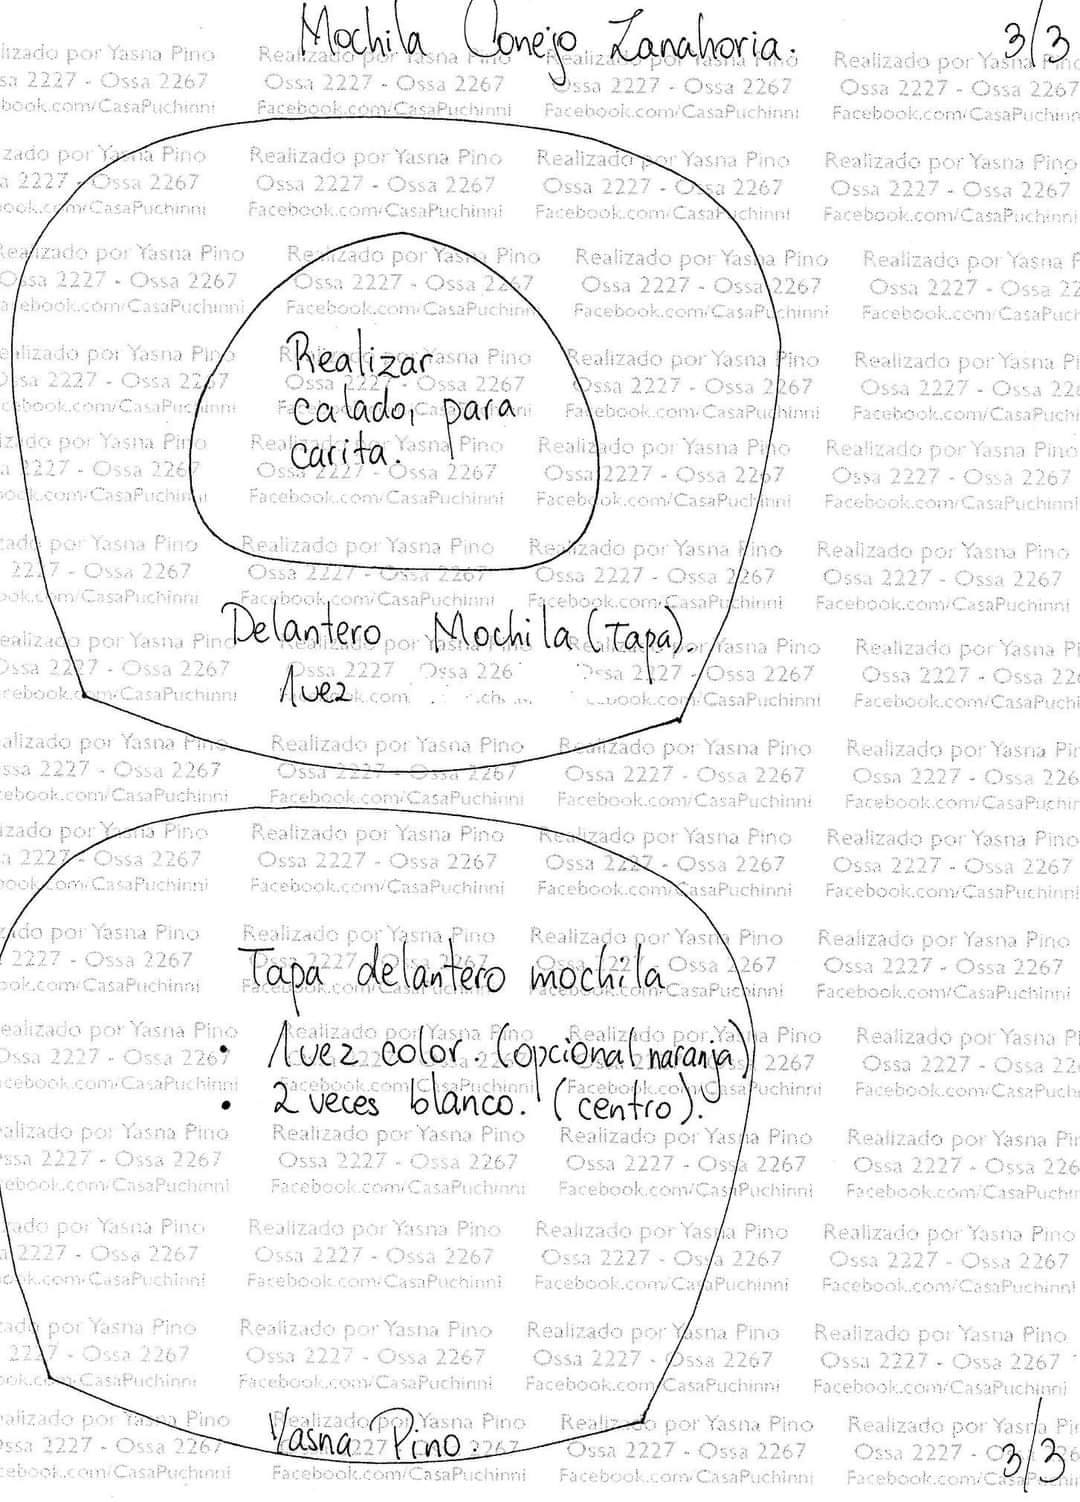 Mochila Conejo Zanahoria. 3/3
Realizado por Yasna Pino
Ossa 2227 - Ossa 2267
Facebook.com/CasaPuchinni
Realizar
calado, para
carita.
Delantero Mochila (Tapa).
1 vez
Tapa delantero mochila
• 1 vez color. (opcional naranja)
• 2 veces blanco. (centro).
Yasna Pino.
3/3